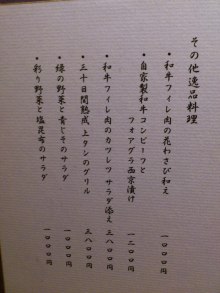 その他逸品料理
・和牛フィレ肉の花わさび和え 一〇〇〇円
・自家製和牛コンビーフと
フォアグラ西京漬け 一二〇〇円
・和牛フィレ肉のカツレツ サラダ添え 三八〇〇円
・三十日間熟成 上タンのグリル 三八〇〇円
・緑の野菜と青じそのサラダ 一〇〇〇円
・彩り野菜と塩昆布のサラダ 一〇〇〇円